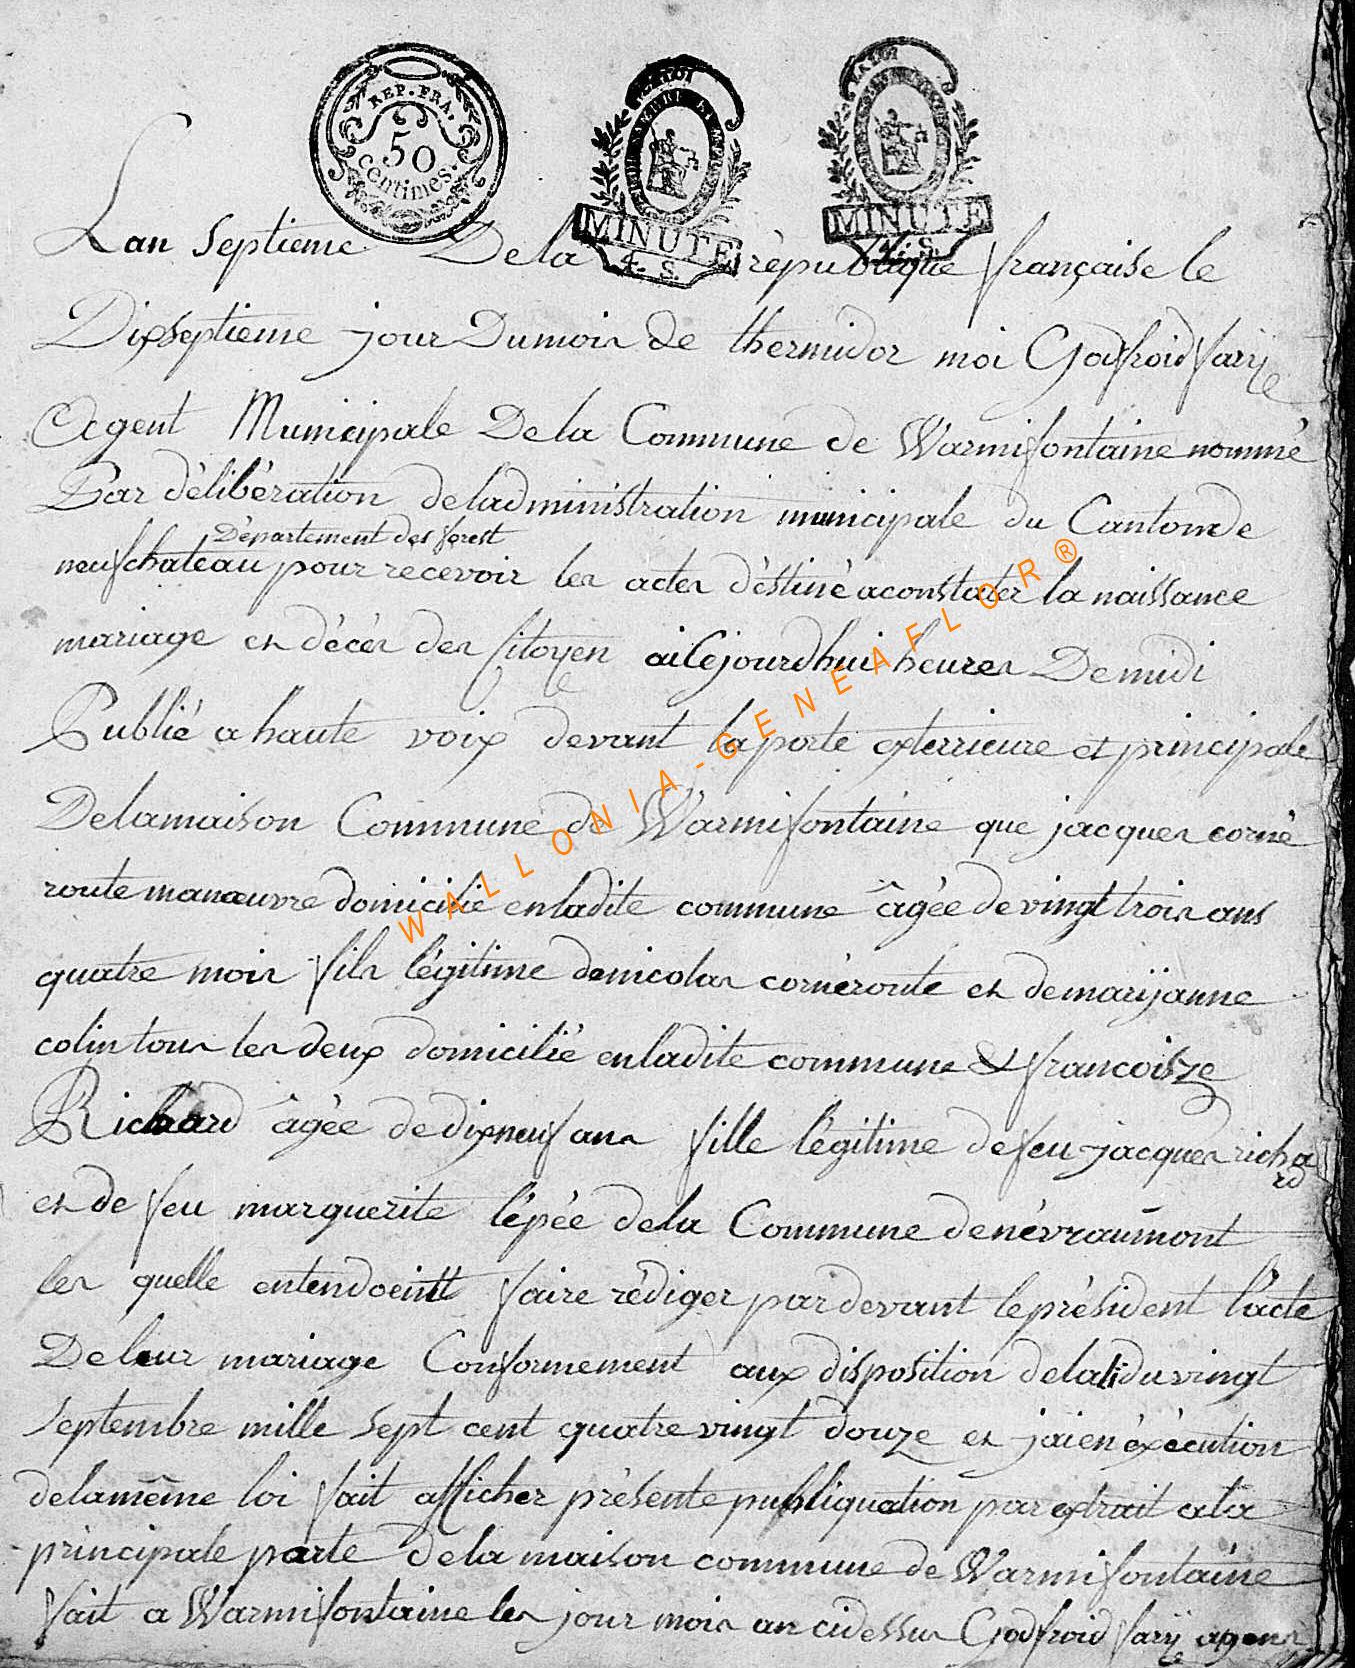 REP. FRA.
50
centimes.
LA LOI
MINUTE
4. S.
LA LOI
MINUTE
4. S.
Lan septieme De la république française le
Dixseptieme jour Dumois de thermidor moi Godfroid fary
Agent Municipale De la Commune de Warmifontaine nommé
Par délibération deladministration municipale du Canton de
Département des forest
neufchateau pour recevoir les actes déstiné aconstater la naissance
mariage et décés des Citoyen aûcéjourdhui heures De midi
Publié a haute voix devant la porte exterrieure et principale
Delamaison Commune de Warmifontaine que jacques corné
route manœuvre domicilié enladite commune âgée de vingt trois ans
quatre mois fils légitime denicolas cornéroute et demarijanne
colin tous les deux domicilié enladite commune & francoisze
Richard âgée de dixneuf ans fille légitime defeu jacques richa
rd
et de feu marguerite lépée dela Commune denévraumont
les quelle entendoeint faire rédiger pardevant leprésident lacte
De leur mariage Conformement aux disposition delaloi du vingt
septembre mille sept cent quatre vingt douze et jaien éxécution
delamême loi fait afficher présente publiquation par extrait ala
principale porte de la maison commune de Warmifontaine
fait a Warmifontaine les jour mois an cidessus Godfroid fary agent
WALLONIA-GENEAFLOR®